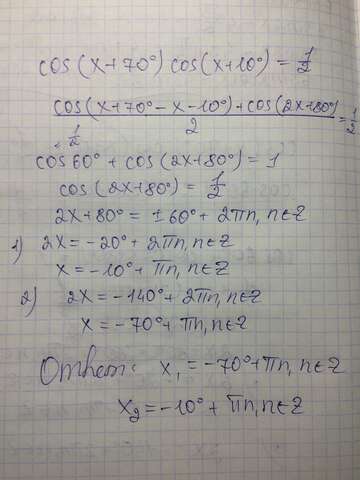 cos(x+70°)cos(x+10°)=1/2
cos(x+70°-x-10°)+cos(2x+80°)/2=1/2
1/2
cos60°+cos(2x+80°)=1
cos(2x+80°)=1/2
2x+80°=±60°+2πn,n∈Z
1) 2x=-20°+2πn,n∈Z
x=-10°+πn,n∈Z
2) 2x=-140°+2πn,n∈Z
x=-70°+πn,n∈Z
Ответ: x₁=-70°+πn,n∈Z
x₂=-10°+πn,n∈Z